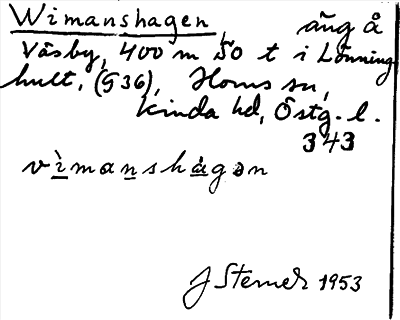 Wimanshagen, äng å
Väsby, 400 m SO t i Lönning
hult, (§36), Horns sn,
Kinda hd, Östg. l.
343
vìmanshågən
J Sterner 1953